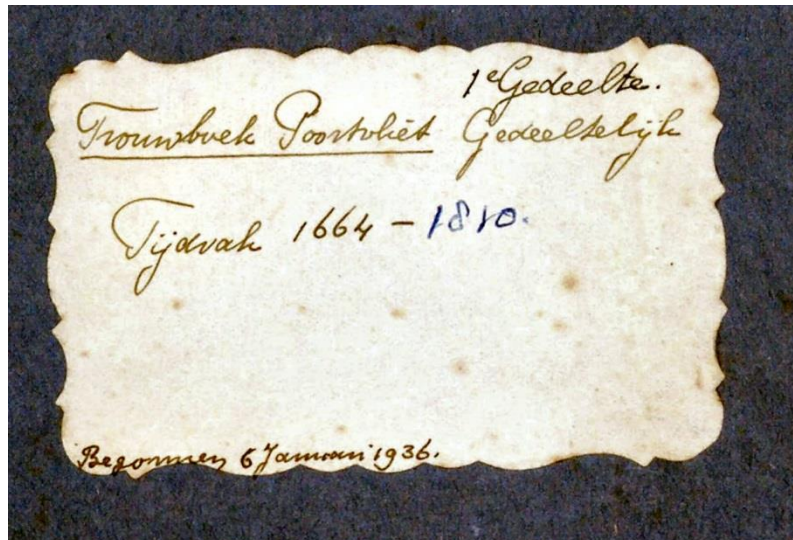 1e Gedeelte.
Trouwboek Poortvliet Gedeeltelijk
Tijdvak 1664 - 1810.
Begonnen 6 Januari 1936.